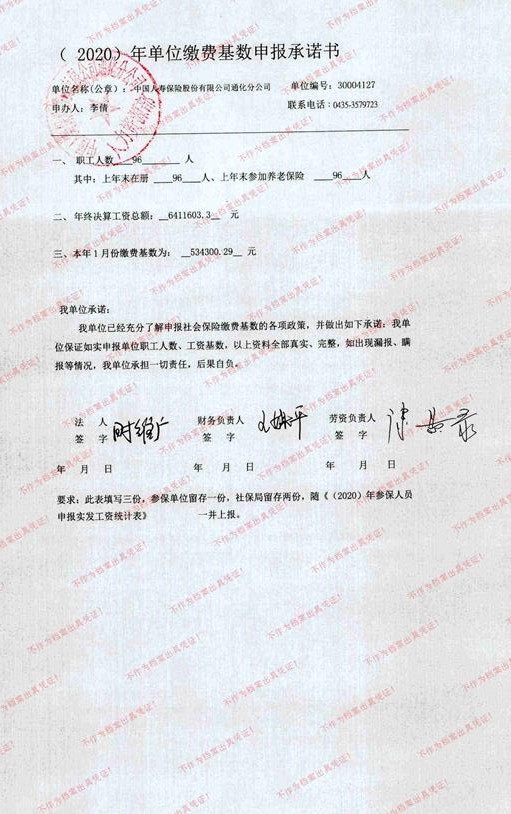 （ 2020）年单位缴费基数申报承诺书
单位名称(公章）：中国人寿保险股份有限公司通化分公司 单位编号：30004127
申办人：李倩 联系电话：0435-3579723
一、 职工人数__96________ 人
其中：上年末在册 ____96__人、上年末参加养老保险 ____96__人
二、年终决算工资总额：__6411603.3__ 元
三、本年1月份缴费基数为：__534300.29__ 元
我单位承诺：
我单位已经充分了解申报社会保险缴费基数的各项政策，并做出如下承诺：我单
位保证如实申报单位职工人数、工资基数，以上资料全部真实、完整，如出现漏报、瞒
报等情况，我单位承担一切责任，后果自负。
法 人 财务负责人 劳资负责人
签 字 签 字 签 字
年 月 日 年 月 日 年 月 日
要求：此表填写三份，参保单位留存一份，社保局留存两份，随《（2020）年参保人员
申报实发工资统计表》 一并上报。
不作为档案出具凭证！